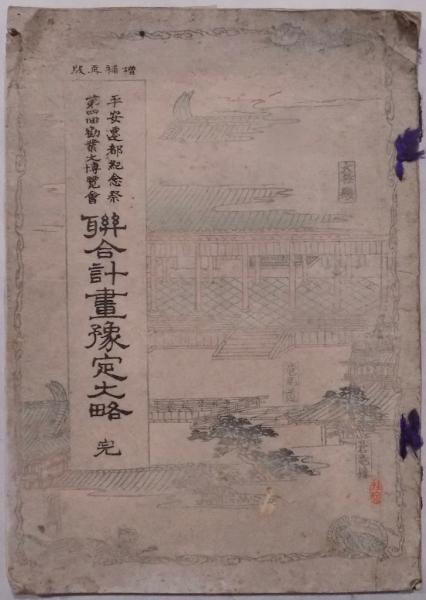 増補再版
平安遷都紀念祭
第四回勸業大博覽會
聯合計畫豫定大略 完
大極殿